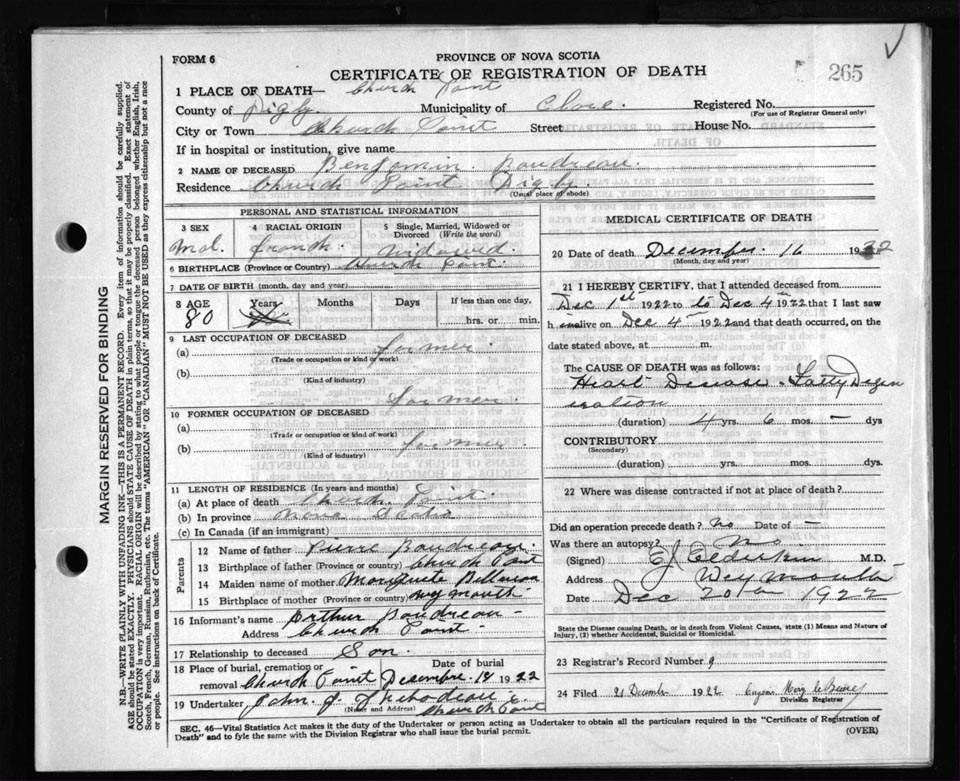 FORM 6
PROVINCE OF NOVA SCOTIA
CERTIFICATE OF REGISTRATION OF DEATH
265
1 PLACE OF DEATH— Church Point
County of Digby Municipality of Clare. Registered No.
(For use of Registrar General only)
City or Town Church Point Street House No.
If in hospital or institution, give name
2 NAME OF DECEASED Benjamin Boudreau.
Residence Church Point Digby.
(Usual place of abode)
PERSONAL AND STATISTICAL INFORMATION
3 SEX 4 RACIAL ORIGIN 5 Single, Married, Widowed or Divorced (Write the word)
Mal. french. widowed.
6 BIRTHPLACE (Province or Country) Church Point.
7 DATE OF BIRTH (month, day and year)
8 AGE Years Months Days If less than one day,
80 hrs. or min.
9 LAST OCCUPATION OF DECEASED
(a) farmer.
(Trade or occupation or kind of work)
(b)
(Kind of industry)
farmer
10 FORMER OCCUPATION OF DECEASED
(a)
(Trade or occupation or kind of work)
(b) farmer
(Kind of industry)
11 LENGTH OF RESIDENCE (In years and months)
(a) At place of death Church Point.
(b) In province Nova Scotia
(c) In Canada (if an immigrant)
Parents
12 Name of father Pierre Boudreau.
13 Birthplace of father (Province or country) Church Point
14 Maiden name of mother
15 Birthplace of mother (Province or country) Weymouth
16 Informant's name Arthur Boudreau
Address Church Point.
17 Relationship to deceased Son.
18 Place of burial, cremation or removal Church Point Date of burial Desembre 18 1922
19 Undertaker John. J. Thibodeau
(Name and Address) Church Point
MEDICAL CERTIFICATE OF DEATH
20 Date of death December. 16 1922
(Month, day and year)
21 I HEREBY CERTIFY, that I attended deceased from
Dec 1st 1922 to to Dec 4th 1922 that I last saw
h im alive on Dec 4th 1922 and that death occurred, on the
date stated above, at m.
The CAUSE OF DEATH was as follows:
Heart Disease - Fatty Degen
eration
(duration) 4 yrs. 6 mos. — dys
CONTRIBUTORY
(Secondary)
(duration) yrs. mos. dys.
22 Where was disease contracted if not at place of death?
Did an operation precede death? No Date of —
Was there an autopsy? No
(Signed) M.D.
Address Weymouth
Date Dec 20th 1922
State the Disease causing Death, or in death from Violent Causes, state (1) Means and Nature of
Injury, (2) whether Accidental, Suicidal or Homicidal.
23 Registrar's Record Number 9
24 Filed 21 December 1922
Division Registrar
SEC. 46—Vital Statistics Act makes it the duty of the Undertaker or person acting as Undertaker to obtain all the particulars required in the "Certificate of Registration of
Death" and to fyle the same with the Division Registrar who shall issue the burial permit.
(OVER)
MARGIN RESERVED FOR BINDING
N.B.—WRITE PLAINLY WITH UNFADING INK—THIS IS A PERMANENT RECORD. Every item of information should be carefully supplied.
AGE should be stated EXACTLY. PHYSICIANS should STATE CAUSE OF DEATH in plain terms, so that it may be properly classified. Exact statement of
OCCUPATION is very important. RACIAL ORIGIN will be described by stating to what people or tongue the deceased person belonged whether English, Irish,
Scotch, French, German, Russian, Ruthenian, etc. The terms "AMERICAN" OR "CANADIAN" MUST NOT BE USED as they express citizenship but not a race
or people. See instructions on back of Certificate.